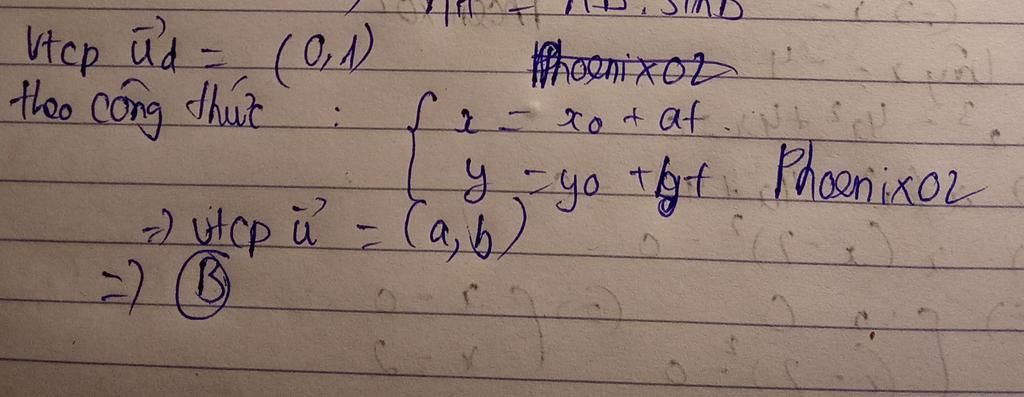 vtcp u⃗d = (0,1)
PhoenixO2
theo công thức : { x = xo + at.
y = yo + bt. PhoenixO2
=> vtcp u⃗ = (a,b)
=> B